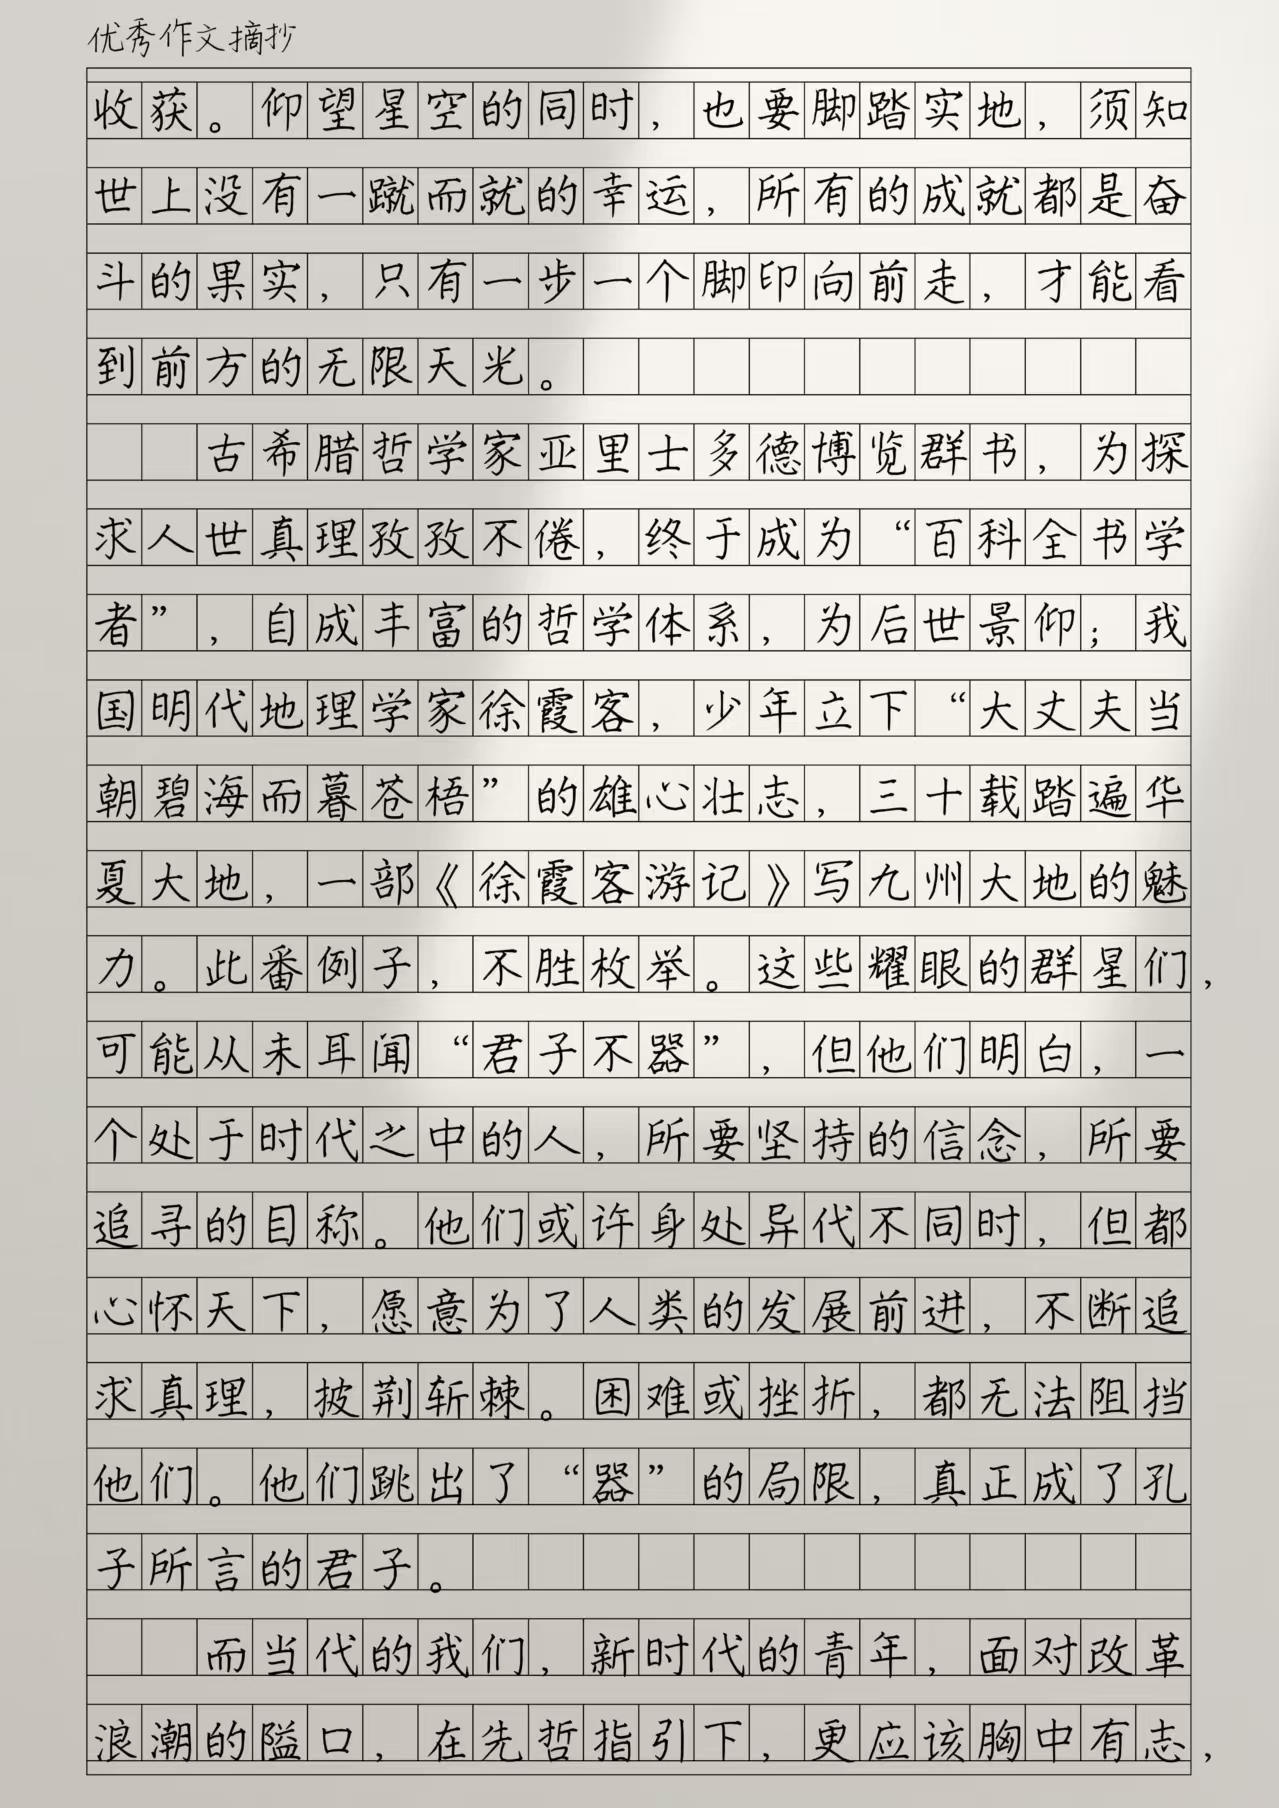 优秀作文摘抄
收获。仰望星空的同时，也要脚踏实地，须知
世上没有一蹴而就的幸运，所有的成就都是奋
斗的果实，只有一步一个脚印向前走，才能看
到前方的无限天光。
古希腊哲学家亚里士多德博览群书，为探
求人世真理孜孜不倦，终于成为“百科全书学
者”，自成丰富的哲学体系，为后世景仰；我
国明代地理学家徐霞客，少年立下“大丈夫当
朝碧海而暮苍梧”的雄心壮志，三十载踏遍华
夏大地，一部《徐霞客游记》写九州大地的魅
力。此番例子，不胜枚举。这些耀眼的群星们，
可能从未耳闻“君子不器”，但他们明白，一
个处于时代之中的人，所要坚持的信念，所要
追寻的目标。他们或许身处异代不同时，但都
心怀天下，愿意为了人类的发展前进，不断追
求真理，披荆斩棘。困难或挫折，都无法阻挡
他们。他们跳出了“器”的局限，真正成了孔
子所言的君子。
而当代的我们，新时代的青年，面对改革
浪潮的隘口，在先哲指引下，更应该胸中有志，